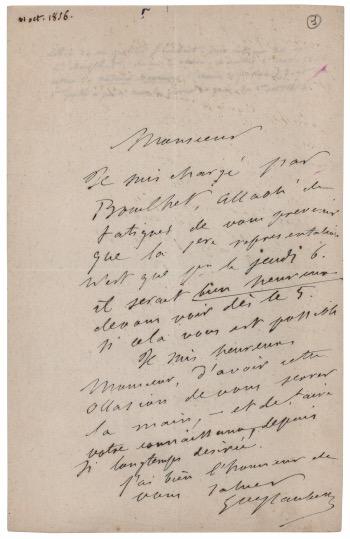 31 oct. 1856.
3
Monsieur
Je suis chargé par
Bouilhet, accablé de
fatigues de vous prévenir
que la 1ere représentation
n'est que pour le jeudi 6.
il serait bien heureux
de vous voir dès le 5.
si cela vous est possible
Je suis heureux
Monsieur, d'avoir cette
occasion de vous serrer
la main, – et de faire
votre connaissance, depuis
si longtemps désirée.
j'ai bien l'honneur de
vous saluer
Gve Flaubert